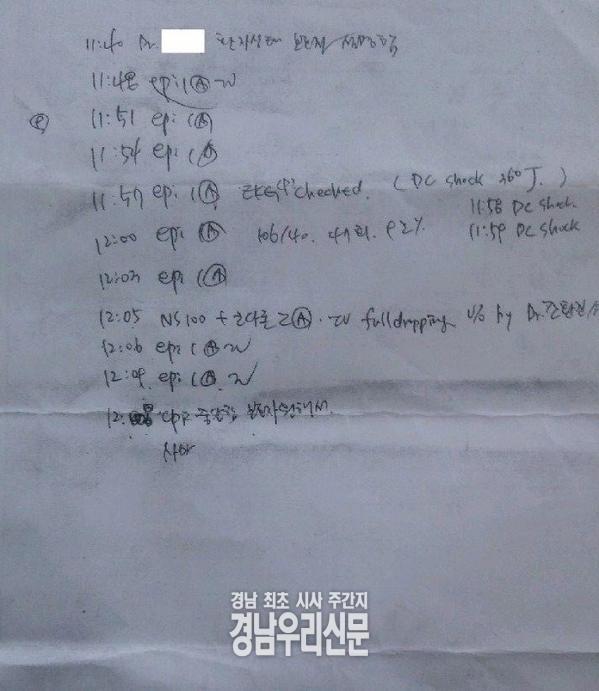 11:40 Dr. 환자상태 보호자 설명함
11:48 epi 1Ⓐ IV
11:51 epi 1Ⓐ
11:54 epi 1Ⓐ
11:57 epi 1Ⓐ EKG checked. (DC shock 360J.)
11:58 DC shock.
12:00 epi 1Ⓐ 106/40. 41회. 92%
11:59 DC shock
12:03 epi 1Ⓐ
12:05 NS100 + 2Ⓐ. IV full dropping v/o by Dr.
12:06 epi 1Ⓐ IV
12:09 epi 1Ⓐ IV
12: 중단함 보호자 원해서.
사망
경남 최초 시사 주간지
경남우리신문